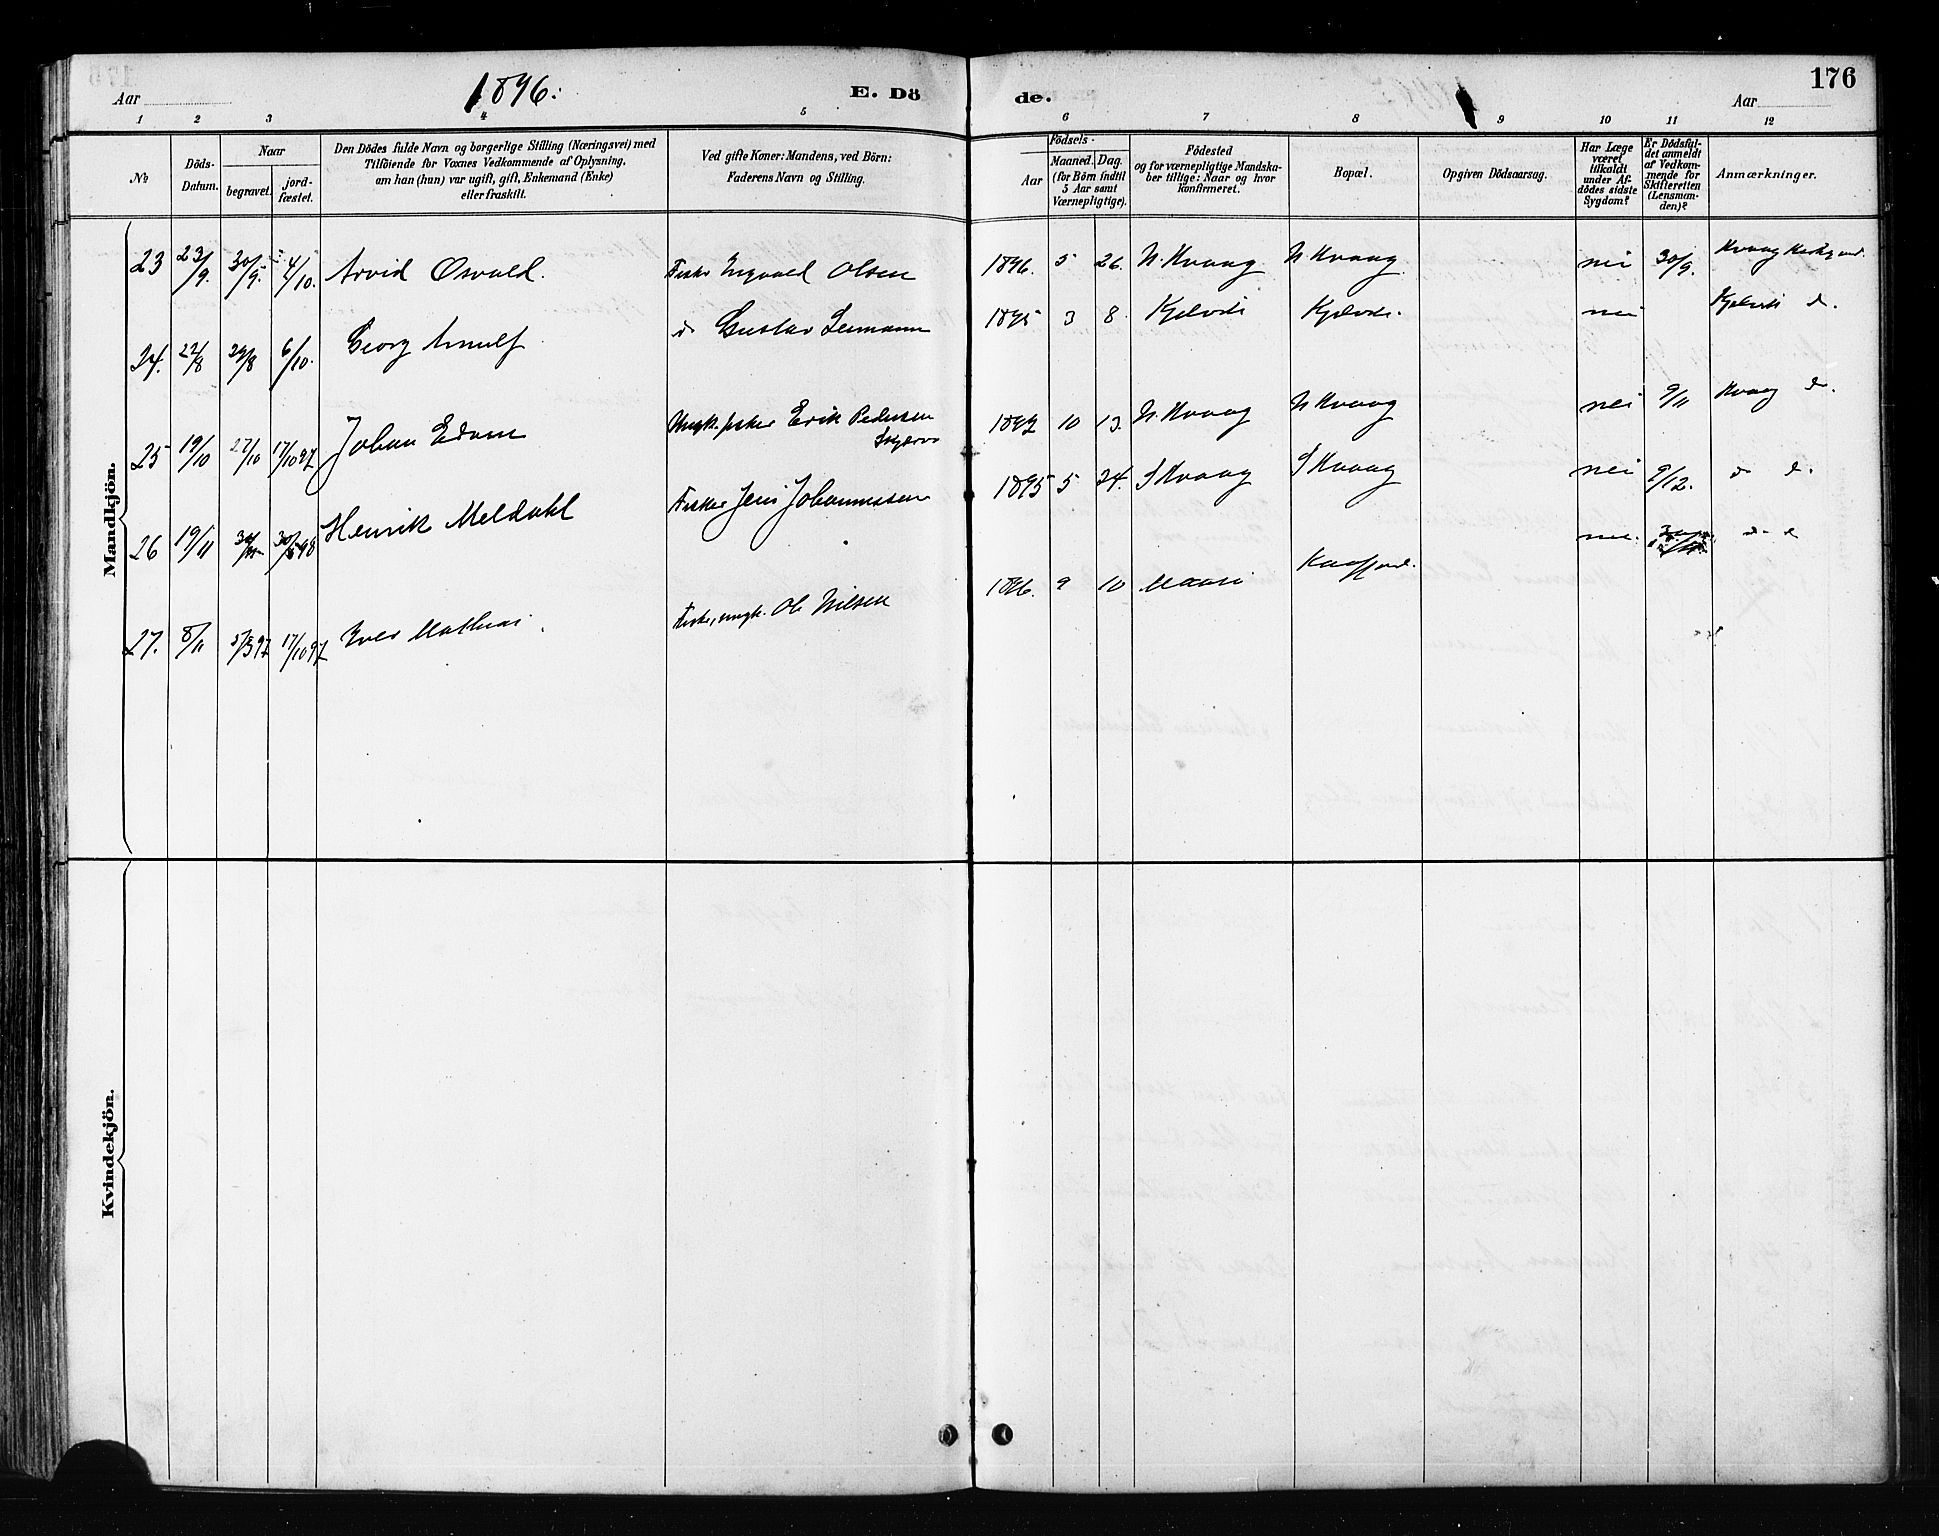 Aar 1896. E. Dö de. Aar 176
1 2 3 4 5 6 7 8 9 10 11 12
№ Döds-Datum. Naar begravet. jord-fæstet.
Den Dödes fulde Navn og borgerlige Stilling (Næringsvei) med
Tilföiende for Voxnes Vedkommende af Oplysning,
om han (hun) var ugift, gift, Enkemand (Enke)
eller fraskilt.
Ved gifte Koner: Mandens, ved Börn:
Faderens Navn og Stilling.
Födsels-
Aar Maaned. Dag.
(for Börn indtil
5 Aar samt
Værnepligtige).
Födested
og for værnepligtige Mandska-
ber tillige: Naar og hvor
konfirmeret.
Bopæl.
Opgiven Dödsaarsag.
Har Læge
været
tilkaldt
under Af-
dödes sidste
Sygdom?
Er Dödsfal-
det anmeldt
af Vedkom-
mende for
Skifteretten
(Lensman-
den)?
Anmærkninger.
Mandkjön.
23 23/9. 30/9. 4/10. Arvid Osvald. Fisker Ingvald Olsen 1896. 5 26. N Kvaag N Kvaag nei 30/9. Kvaag
24. 22/8 29/8 6/10. Georg Arnulf do Gustav 1895 3 8. Kjelvik Kjelvik. nei Kjelvik do.
25 19/10 27/10 17/10 97 Johan Edvin Ungk. fisker Erik Pedersen 10 13. N. Kvaag N Kvaag nei 9/11 Kvaag do.
26 19/11 30/5 98 Henrik Meldahl Fisker Jens Johannessen 1895 5 24. S Kvaag S Kvaag nei 9/12. do do.
27. 8/11 17/10 97 Iver Mathias. Fisker, ungk. Ole Nilsen 1896. 9 10 Maasö Kaafjord. nei.
Kvindekjön.